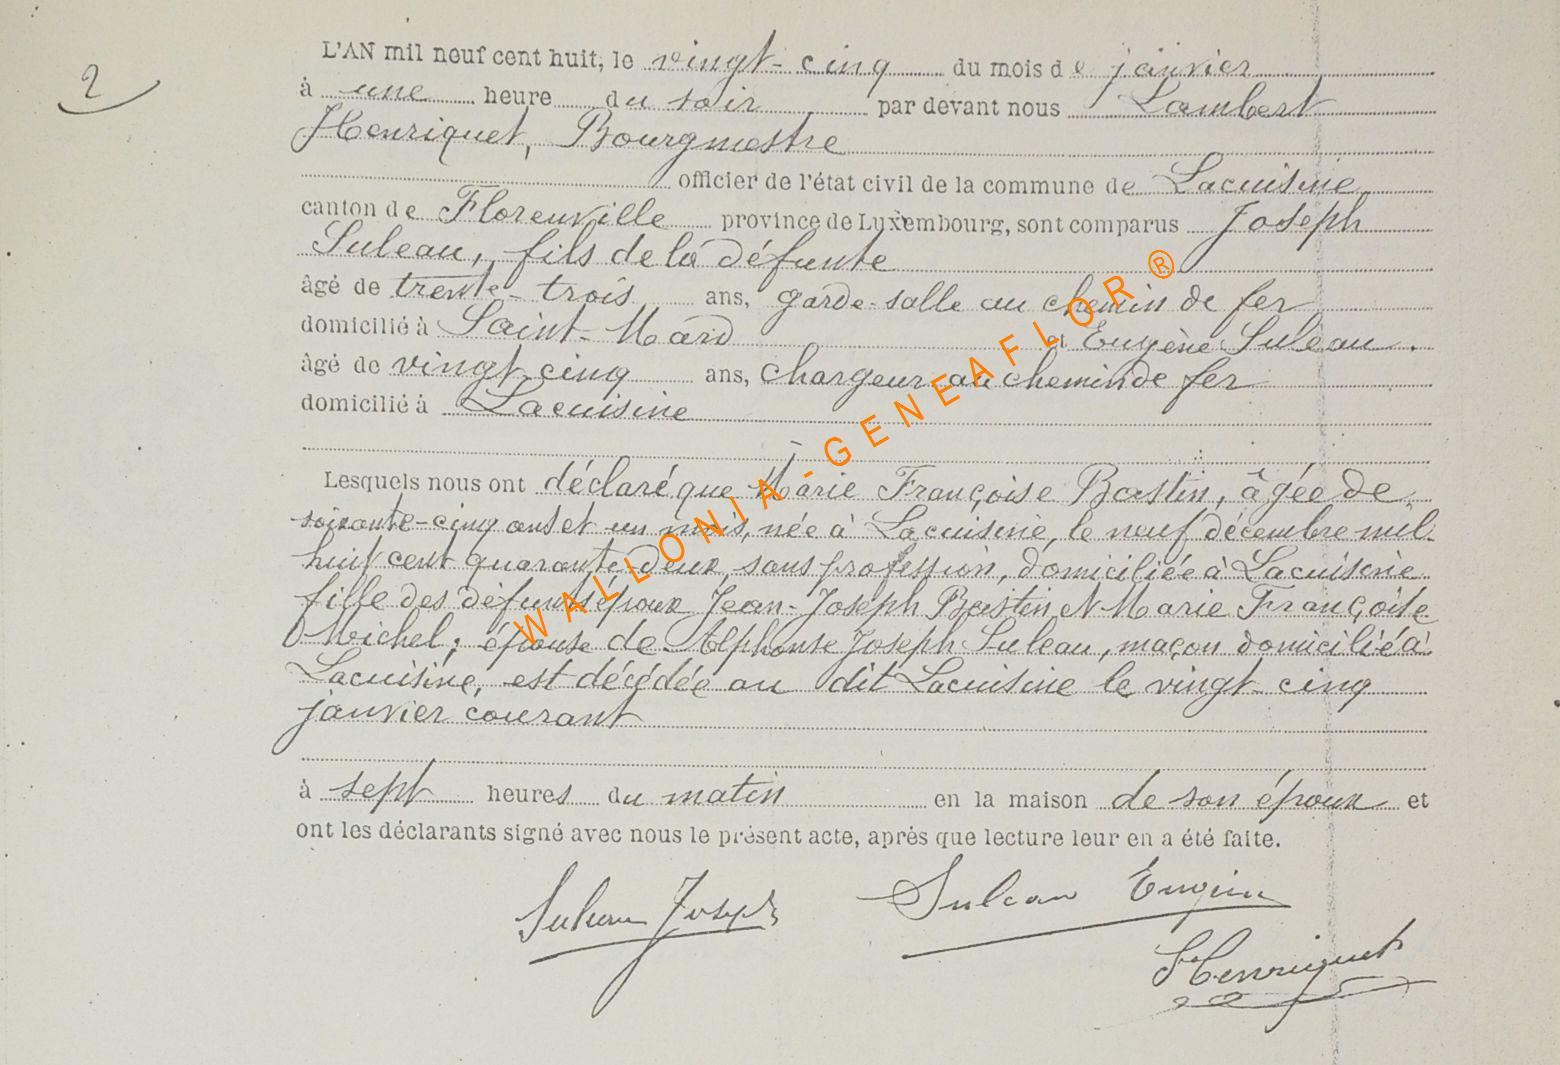 2
L'AN mil neuf cent huit, le vingt-cinq du mois de janvier
à une heure du soir par devant nous Lambert
Henriquet, Bourgmestre
officier de l'état civil de la commune de Lacuisine,
canton de Florenville province de Luxembourg, sont comparus Joseph
Suleau, fils de la défunte
âgé de trente-trois ans, garde-salle au chemin de fer
domicilié à Saint-Mard et Eugène Suleau.
âgé de vingt-cinq ans, chargeur au chemin de fer
domicilié à Lacuisine
Lesquels nous ont déclaré que Marie Françoise Bastin, âgée de
soixante-cinq ans et un mois, née à Lacuisine, le neuf décembre mil
huit cent quarante-deux, sans profession, domiciliée à Lacuisine
fille des défunts époux Jean-Joseph Bastin et Marie Françoise
Michel; épouse de Alphonse Joseph Suleau, maçon domicilié à
Lacuisine, est décédée au dit Lacuisine le vingt-cinq
janvier courant
à sept heures du matin en la maison de son époux et
ont les déclarants signé avec nous le présent acte, après que lecture leur en a été faite.
Suleau Joseph Suleau Eugène
Henriquet
WALLONIA-GENEAFLOR ®